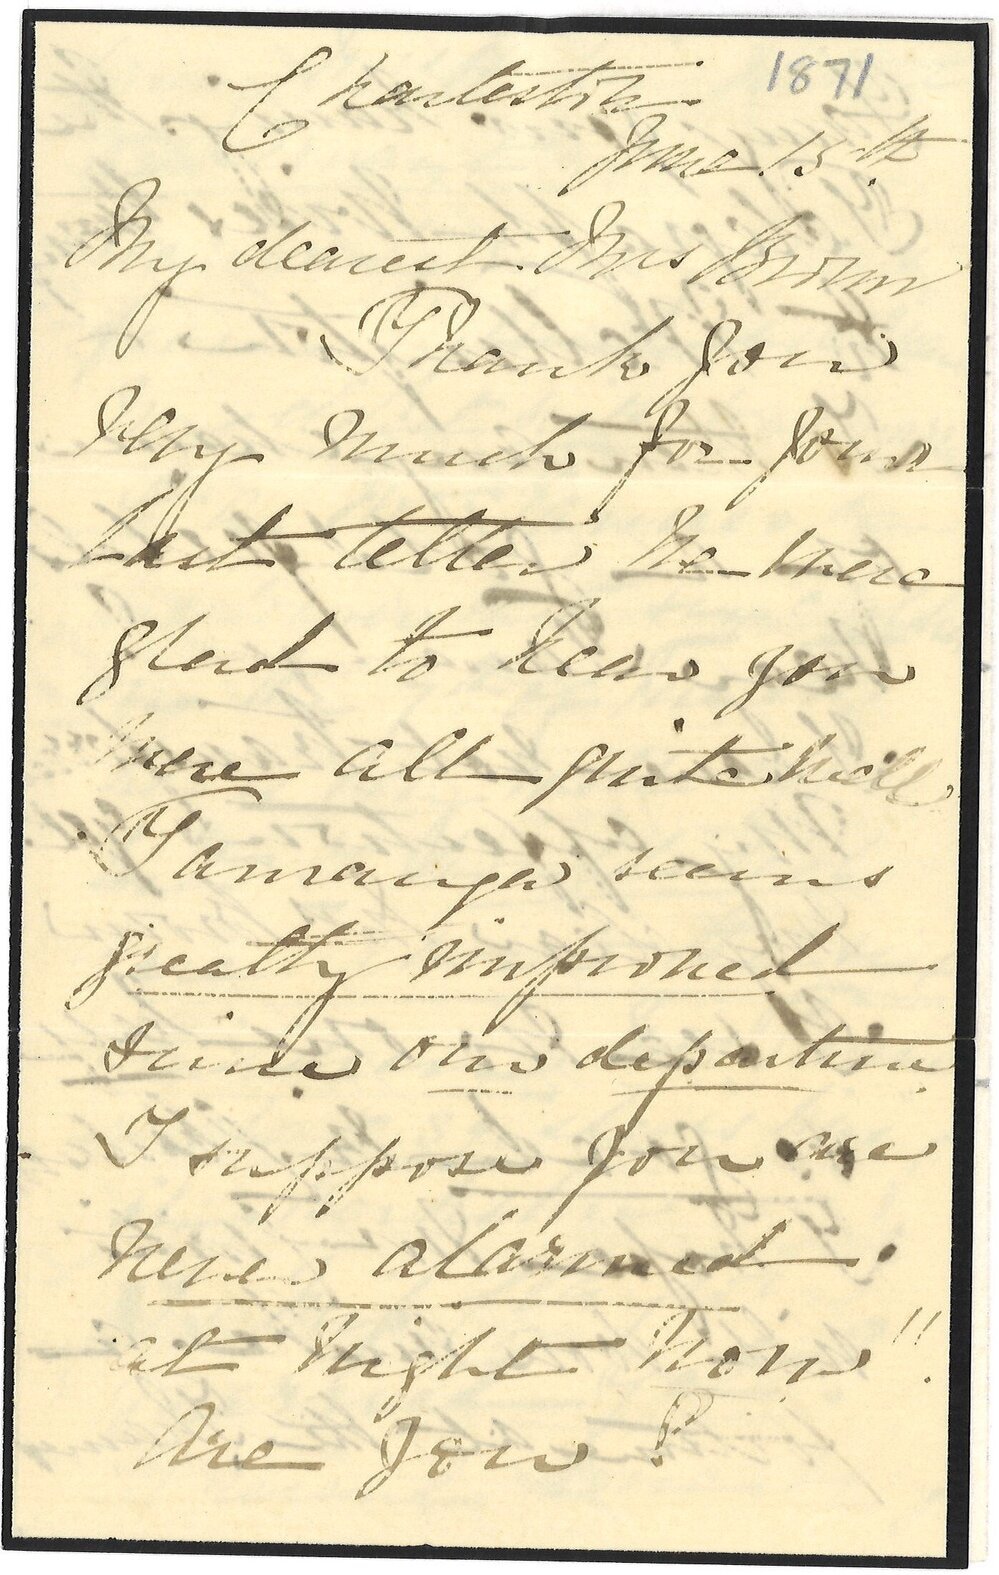 1871
Charleston
June 15th
My dearest Mrs Brown
Thank you
very much for your
last letter we were
glad to hear you
were all quite well
Tauranga seems
greatly improved
since our departure
I suppose you are
never alarmed
at night now!!
Are you?